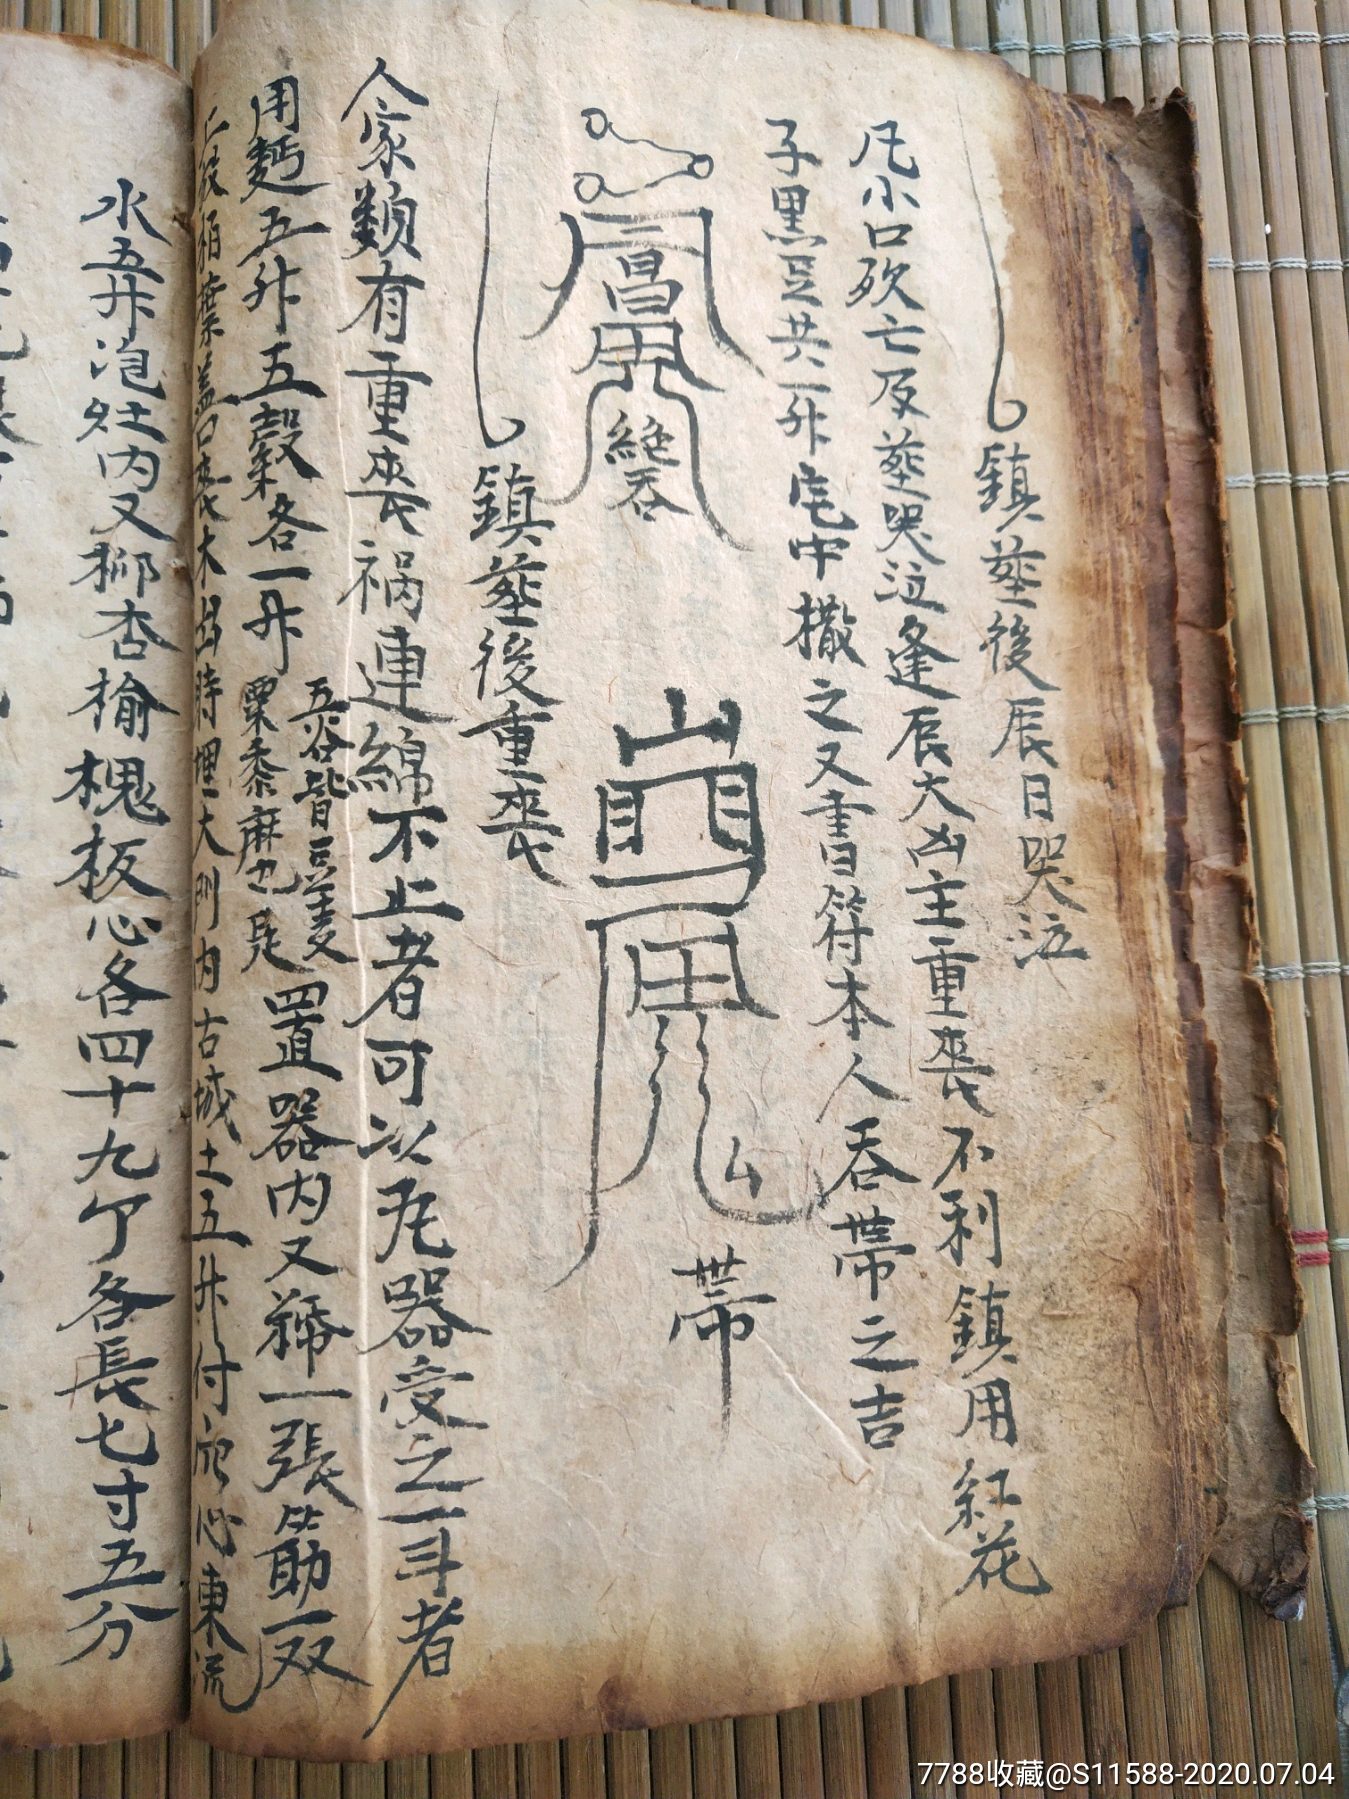 鎮葬後辰日哭泣
凡小口死亡及葬哭泣逢辰大凶主重喪不利鎮用紅花
子黑豆共一升宅中撒之又書符本人吞帶之吉
絶吞
帶
鎮葬後重喪
人家類有重喪禍連綿不止者可以瓦器受之一斗者
用麪五升五穀各一升五谷皆豆麦
粟黍麻也是置器内又一張筯一双
柏葉盖口喪木出時埋大門内古城土五升付心東流
水五升泡灶内又柳杏榆槐板心各四十九个各長七寸五分
7788收藏@S11588-2020.07.04